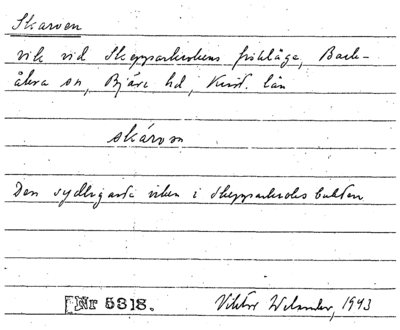 Skarven
vik vid Skepparkrokens fiskläge, Bark-
åkra sn, Bjäre hd, Krist. län
skárvn
Den sydligaste viken i Skepparkroksbukten
Nr 5318. Viktor Welander, 1943